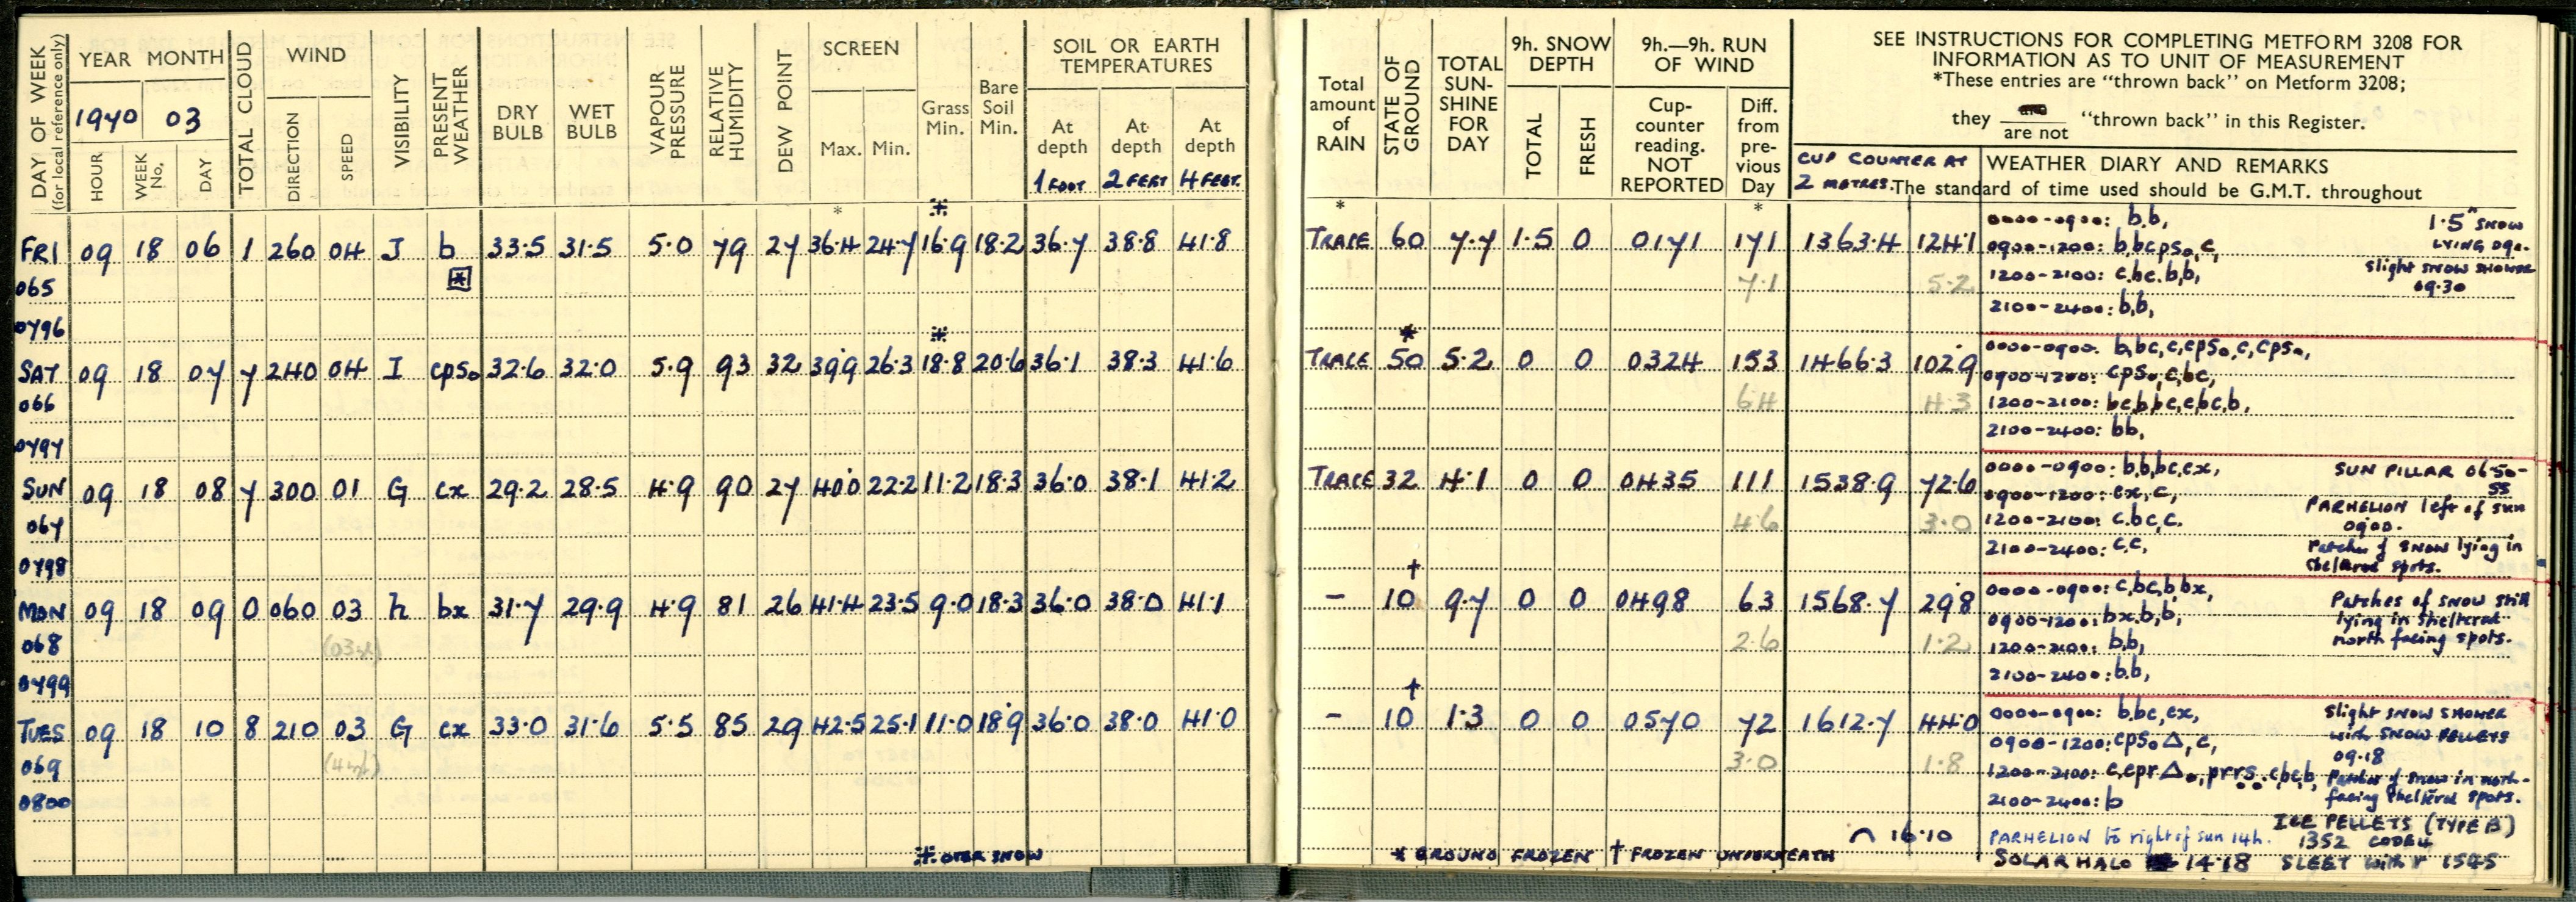 DAY OF WEEK (for local reference only)
YEAR MONTH
1970 03
HOUR WEEK No. DAY
TOTAL CLOUD
WIND
DIRECTION SPEED
VISIBILITY
PRESENT WEATHER
DRY BULB
WET BULB
VAPOUR PRESSURE
RELATIVE HUMIDITY
DEW POINT
SCREEN
Max. Min.
Grass Min.
Bare Soil Min.
SOIL OR EARTH TEMPERATURES
At depth 1 FOOT
At depth 2 FEET
At depth 4 FEET.
* ⁜
FRI 09 18 06 1 260 04 J b 33.5 31.5 5.0 79 27 36.4 24.7 16.9 18.2 36.7 38.8 41.8
065
0796
⁜
SAT 09 18 07 7 240 04 I cps₀ 32.6 32.0 5.9 93 32 39.9 26.3 18.8 20.6 36.1 38.3 41.6
066
0797
SUN 09 18 08 7 300 01 G cx 29.2 28.5 4.9 90 27 40.0 22.2 11.2 18.3 36.0 38.1 41.2
067
0798
MON 09 18 09 0 060 03 h bx 31.7 29.9 4.9 81 26 41.4 23.5 9.0 18.3 36.0 38.0 41.1
068
0799
TUES 09 18 10 8 210 03 G cx 33.0 31.6 5.5 85 29 42.5 25.1 11.0 18.9 36.0 38.0 41.0
069
0800
⁜ OVER SNOW
Total amount of RAIN
STATE OF GROUND
TOTAL SUN-SHINE FOR DAY
9h. SNOW DEPTH
TOTAL FRESH
9h.—9h. RUN OF WIND
Cup-counter reading. NOT REPORTED
Diff. from pre-vious Day
SEE INSTRUCTIONS FOR COMPLETING METFORM 3208 FOR
INFORMATION AS TO UNIT OF MEASUREMENT
*These entries are "thrown back" on Metform 3208;
they are not "thrown back" in this Register.
CUP COUNTER AT 2 METRES.
WEATHER DIARY AND REMARKS
The standard of time used should be G.M.T. throughout
* *
TRACE 60 7.7 1.5 0 0171 171 1363.4 124.1
7.1 5.2
0000-0900: b,b,
0900-1200: b,bcps₀,c,
1200-2100: c,bc.b,b,
2100-2400: b,b,
1.5" SNOW
LYING 090-
Slight SNOW SHOWER
09.30
*
TRACE 50 5.2 0 0 0324 153 1466.3 102.9
6.4 4.3
0000-0900. b,bc,c,cps₀,c,cps₀,
0900-1200: cps₀,c,bc,
1200-2100: bc,b,bc,c,bc,b,
2100-2400: bb,
TRACE 32 4.1 0 0 0435 111 1538.9 72.6
4.6 3.0
0000-0900: b,b,bc,cx,
0900-1200: cx,c,
1200-2100: c.bc,c.
2100-2400: c.c,
SUN PILLAR 0650-
55
PARHELION left of sun
0900.
Patches of SNOW lying in
sheltered spots.
†
- 10 9.7 0 0 0498 63 1568.7 29.8
2.6 1.2
0000-0900: c,bc,b,bx,
0900-1200: bx.b,b,
1200-2100: b,b,
2100-2400: b.b,
Patches of SNOW still
lying in sheltered
north facing spots.
†
- 10 1.3 0 0 0570 72 1612.7 44.0
3.0 1.8
0000-0900: b,bc,cx,
0900-1200: cps₀△,c,
1200-2100: c,cpr△₀,prrs.cbc,b,
2100-2400: b
Slight SNOW SHOWER
with SNOW PELLETS
09.18
Patches of snow in north-
facing sheltered spots.
⌒ 16.10
PARHELION to right of sun 14h.
SOLAR HALO 14.18
ICE PELLETS (TYPE B)
1352 CODE 4
SLEET with r 1545
* GROUND FROZEN † FROZEN UNDERNEATH